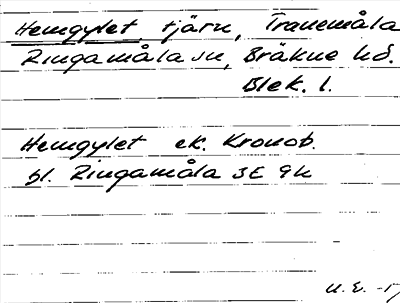 Hemgylet, tjärn, Tranemåla
Ringamåla sn, Bräkne hd.
Blek. l.
Hemgylet ek. Kronob.
bl. Ringamåla 3E 9h
U. E. -17